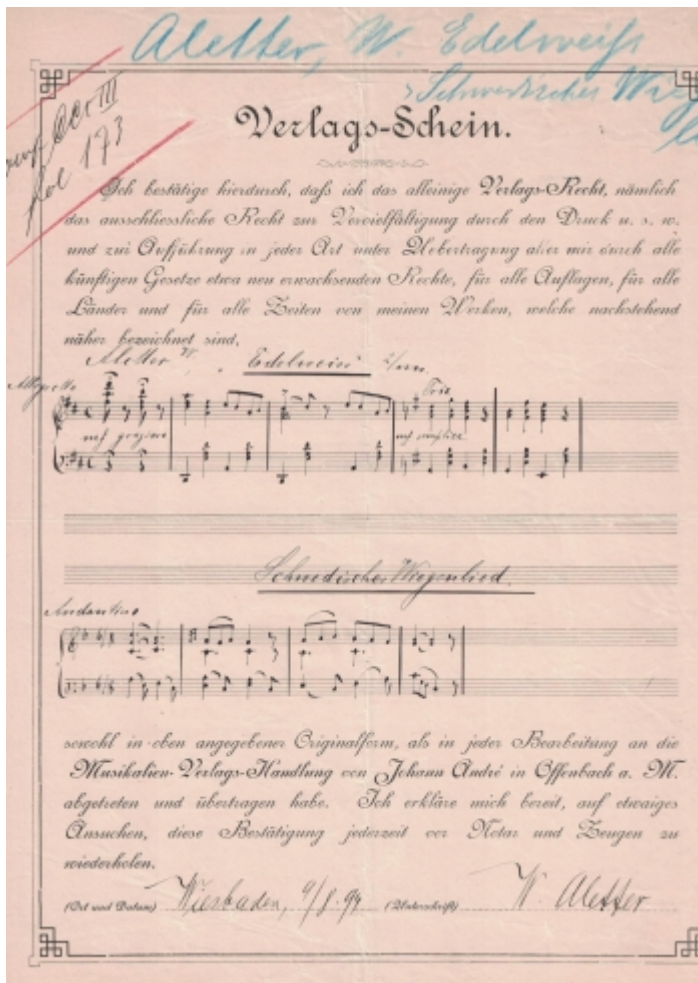 Aletter, W. Edelweiss
Schwedisches Wieg
fol 173
Verlags-Schein.
Ich bestätige hierdurch, daß ich das alleinige Verlags-Recht, nämlich
das ausschliessliche Recht zur Vervielfältigung durch den Druck u. s. w.
und zur Aufführung in jeder Art unter Uebertragung aller mir durch alle
künftigen Gesetze etwa neu erwachsenden Rechte, für alle Auflagen, für alle
Länder und für alle Zeiten von meinen Werken, welche nachstehend
näher bezeichnet sind,
Aletter W. Edelweiss
Allegretto
Trio
Schwedisches Wiegenlied.
Andantino
sowohl in oben angegebener Originalform, als in jeder Bearbeitung an die
Musikalien-Verlags-Handlung von Johann André in Offenbach a. M.
abgetreten und übertragen habe. Ich erkläre mich bereit, auf etwaiges
Ansuchen, diese Bestätigung jederzeit vor Notar und Zeugen zu
wiederholen.
(Ort und Datum) Wiesbaden, (Unterschrift) W. Aletter